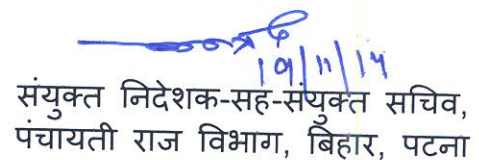 19/11/14
संयुक्त निदेशक-सह-संयुक्त सचिव,
पंचायती राज विभाग, बिहार, पटना